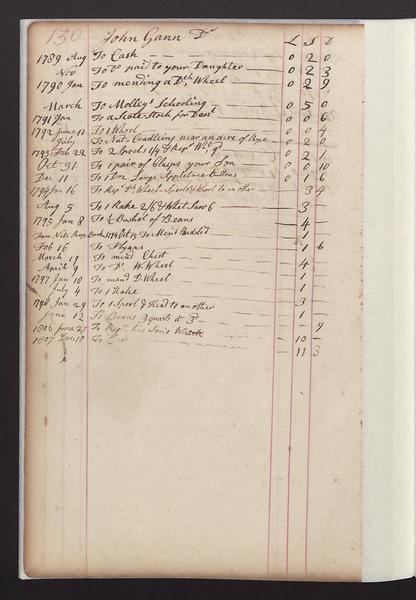 130 John Gann Dr
£ S D
1789 Aug To Cash 0 2 0
Nov To Do paid to your Daughter 0 2 3
1790 Jan To mending a Dth Wheel 0 2 9
March To Molleys Schooling 0 5 0
1791 Jan To a Scate Stock for Danl 0 0 6
1792 June 11 To 1 Whorl 0 0 4
July To near an acre of Rye 0 2 0
1793 Feb 22 To 2 Spools 1/4 & Repg Whl 9d 2
Oct 31 To 1 pair of Clasps your Son 0 0 10
Dec 11 To 1 Dz Large Appletree buttons 0 1 6
1794 Jan 16 To Repg Wheel Spool & to another 3 4
Aug 5 To 1 Rake 2/6 & Whet 6 3
1795 Jan 8 To ½ Bushel of Beans 4
From Book 1796 Oct 15 To Mend 1
Feb 16 To 1 6
March 19 To mend Chest
April 9 To Do W. Wheel 4
1797 Jan 10 To mend D. Wheel 1
July 4 To 1 Rake 1
1798 Jan 29 To 1 Spool & Head to another 3
June 12 To Beans 3 quarts at 3d 1
1806 June 27 To Repg his Son's Watch 9
1807 Dec 10 To Cash 10
11 3